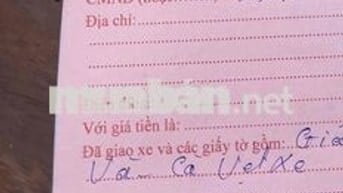 Địa chỉ:
muaban.net
Với giá tiền là:
Đã giao xe và các giấy tờ gồm: Giấ
Và Cà Vẹt Xe